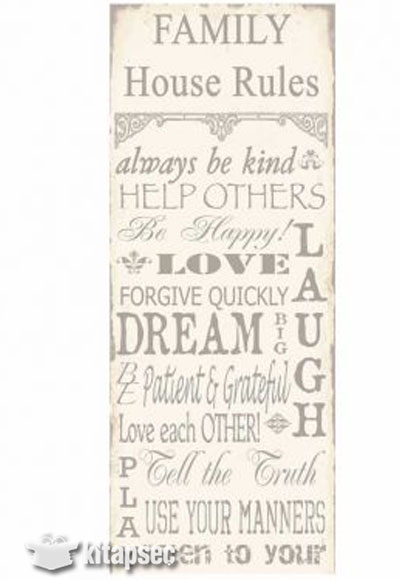 FAMILY
House Rules
always be kind
HELP OTHERS
Be Happy!
LOVE
LAUGH
FORGIVE QUICKLY
DREAM BIG
BE Patient & Grateful
Love each OTHER!
Tell the Truth
PLA
USE YOUR MANNERS
to your
kitapseç